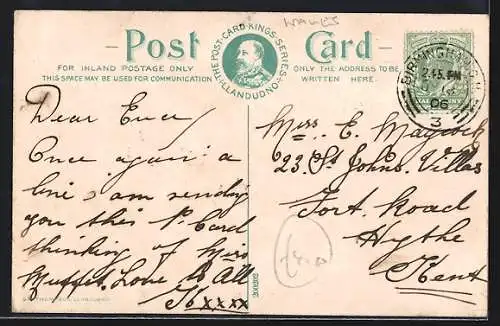 WALES
Post Card
THE POST-CARD-KINGS-SERIES
LLANDUDNO
FOR INLAND POSTAGE ONLY
THIS SPACE MAY BE USED FOR COMMUNICATION
ONLY THE ADDRESS TO BE
WRITTEN HERE.
BIRMINGHAM
2.45 PM
06
3
Dear
Once again a
line i am sending
you this P. Card
thinking of Miss
Muffet. Love to All
xxxx
Miss E. Maycock
23, St Johns Villas
Fort Road
Hythe
Kent